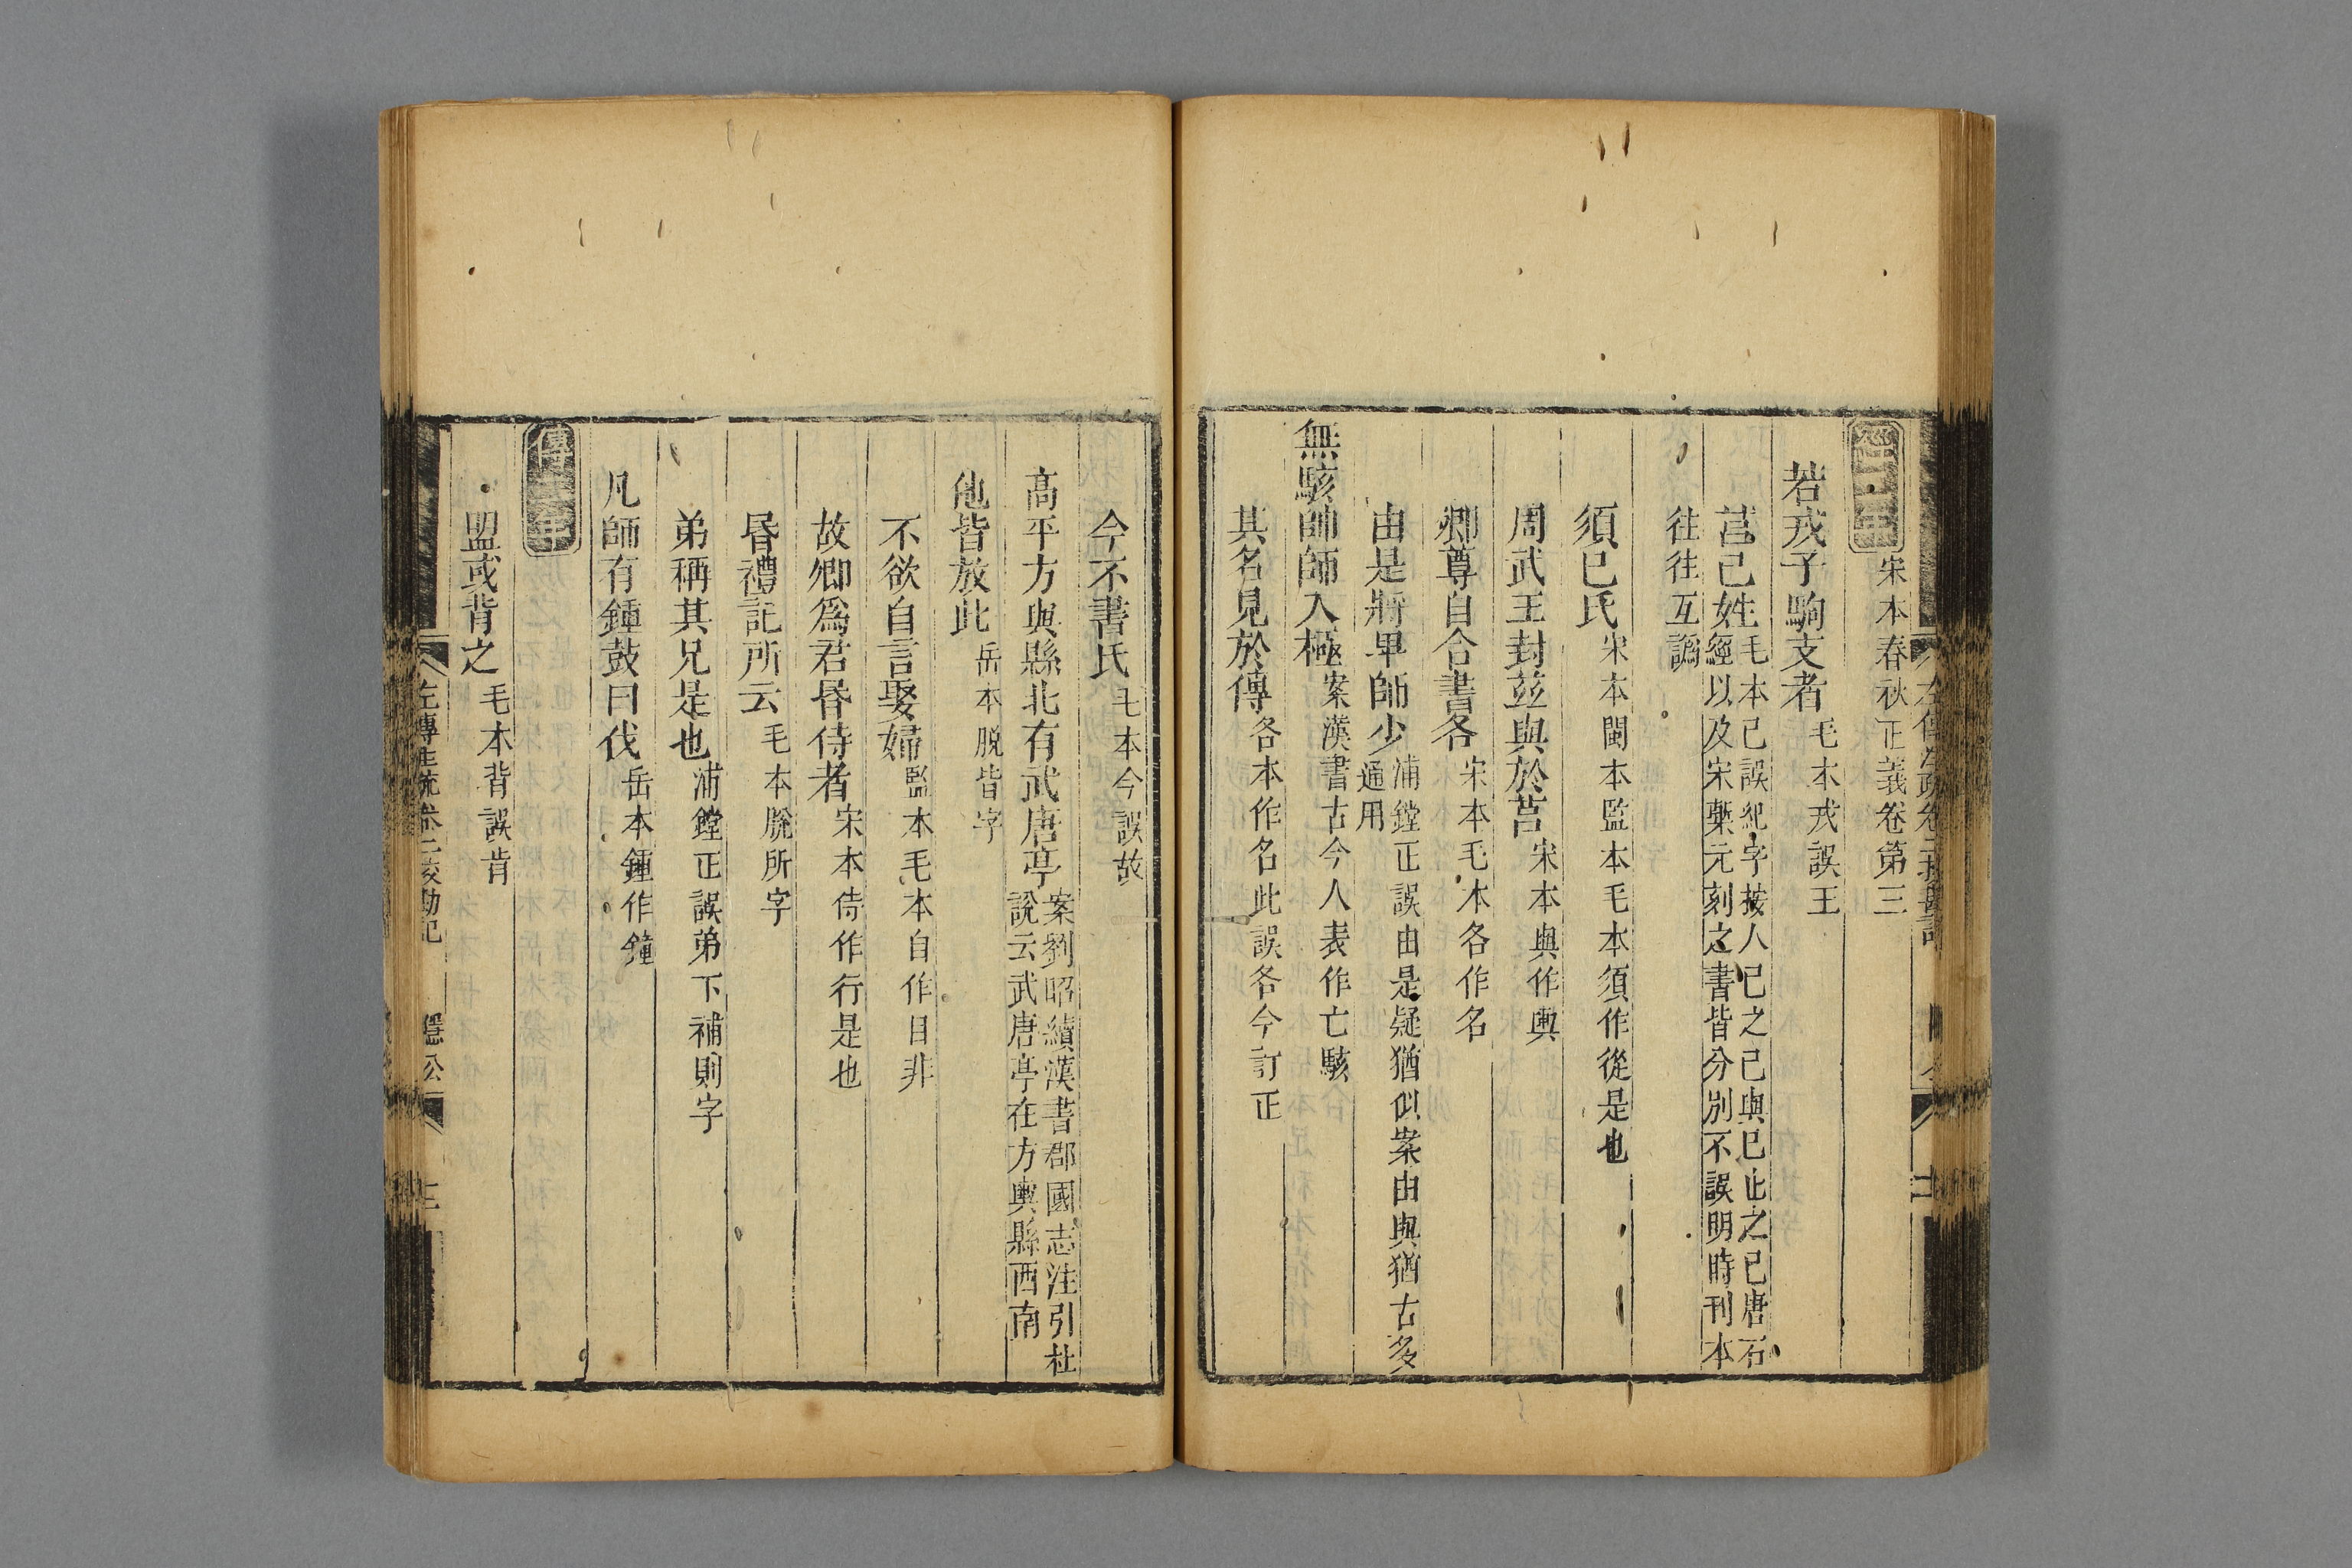 經二年宋本春秋正義卷第三
若戎子駒支者毛本戎誤王
莒己姓毛本己誤紀字按人己之己與已止之已唐石經以及宋槧元刻之書皆分別不誤明時刊本
往往互譌
須巳氏宋本閩本監本毛本須作從是也
周武王封茲與於莒宋本與作輿
卿尊自合書各宋本毛本各作名
由是將卑師少浦鏜正誤由是疑猶似案由與猶古多通用
無駭帥師入極案漢書古今人表作亡駭
其名見於傳各本作名此誤各今訂正
今不書氏毛本今誤故
高平方與縣北有武唐亭案劉昭續漢書郡國志注引杜說云武唐亭在方輿縣西南
他皆放此岳本脫皆字
不欲自言娶婦監本毛本自作目非
故卿爲君昏侍者宋本侍作行是也
昏禮記所云毛本脫所字
弟稱其兄是也浦鏜正誤弟下補則字
凡師有鍾鼓曰伐岳本鍾作鐘
傳二年
盟或背之毛本背誤肯
左傳注疏卷二校勘記 隱公